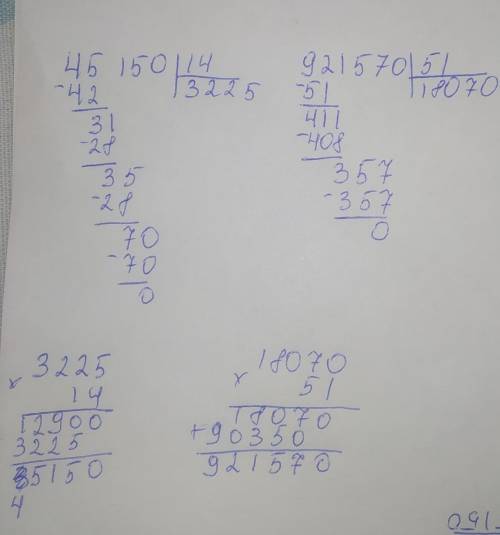 45 150 | 14
-42 3225
31
-28
35
-28
70
-70
0
921570 | 51
-51 18070
411
-408
357
-357
0
3225
x 14
12900
3225
45150
18070
x 51
18070
+90350
921570